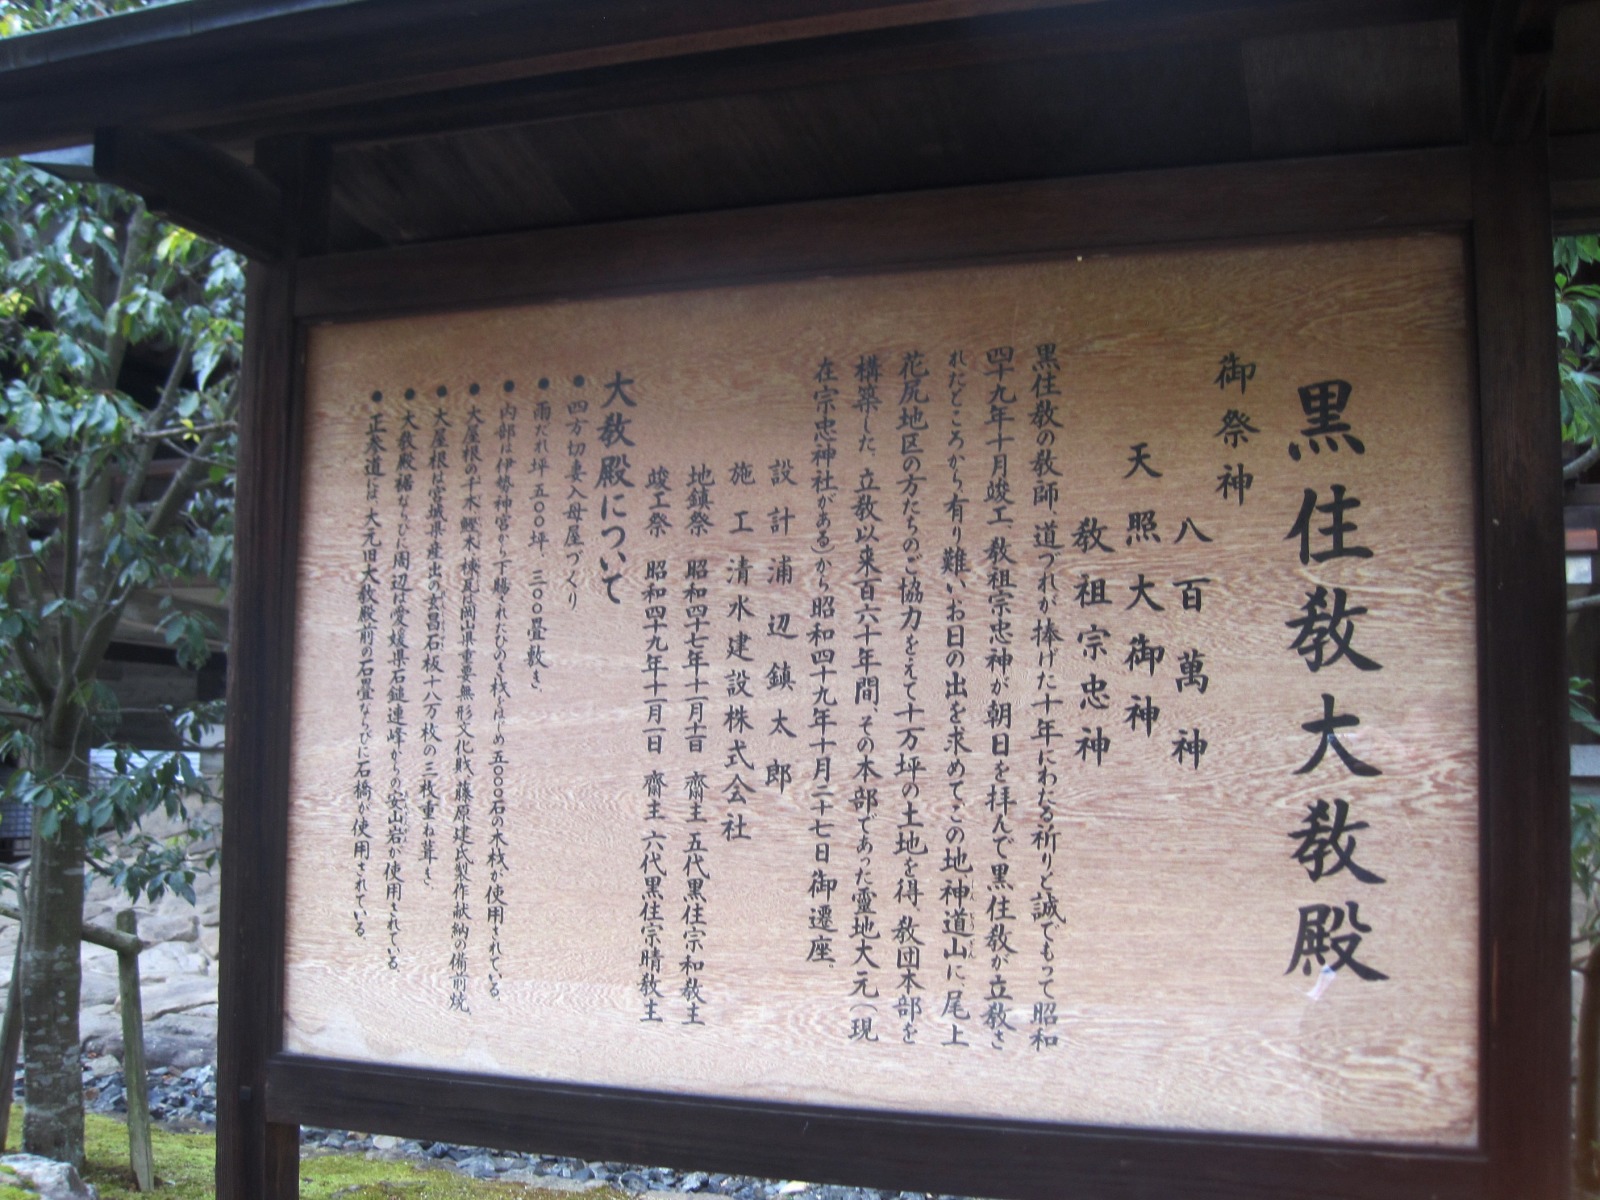 黒住教大教殿
御祭神
八百萬神
天照大御神
教祖宗忠神
黒住教の教師、道づれが捧げた十年にわたる祈りと誠でもって昭和
四十九年十月竣工、教祖宗忠神が朝日を拝んで黒住教が立教さ
れたところから、有り難いお日の出を求めてこの地神道山に、尾上
花尻地区の方たちのご協力をえて十万坪の土地を得、教団本部を
構築した。立教以来百六十年間、その本部であった霊地大元(現
在宗忠神社がある)から昭和四十九年十月二十七日御遷座。
設計 浦辺鎮太郎
施工 清水建設株式会社
地鎮祭 昭和四十七年十一月 齋主 五代黒住宗和教主
竣工祭 昭和四十九年十一月一日 齋主 六代黒住宗晴教主
大教殿について
● 四方切妻入母屋づくり
● 雨だれ坪 五〇〇坪、三〇〇畳敷き、
● 内部は伊勢神宮から下賜されたひのき材をはじめ五〇〇〇石の木材が使用されている。
● 大屋根の千木、鰹木、棟瓦は岡山県重要無形文化財、藤原建氏製作献納の備前焼
● 大屋根は宮城県産出の玄昌石板十八万枚の三枚重ね葺き、
● 大教殿裾ならびに周辺は愛媛県石鎚連峰からの安山岩が使用されている。
● 正参道には、大元旧大教殿前の石畳ならびに石橋が使用されている。